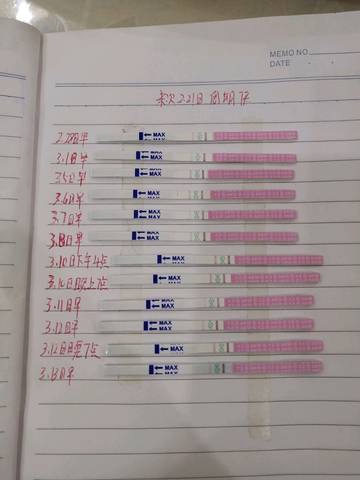 MEMO NO.
DATE
末次2.21日 周期17
2.28日早
MAX
MAX
3.1日早
MAX
MAX
3.5日早
MAX
MAX
3.6日早
MAX
MAX
3.7日早
MAX
MAX
3.8日早
MAX
MAX
3.10日下午4点
MAX
3.10日晚上7点
MAX
3.11日早
MAX
3.12日早
MAX
3.12日晚7点
MAX
3.13日早
MAX